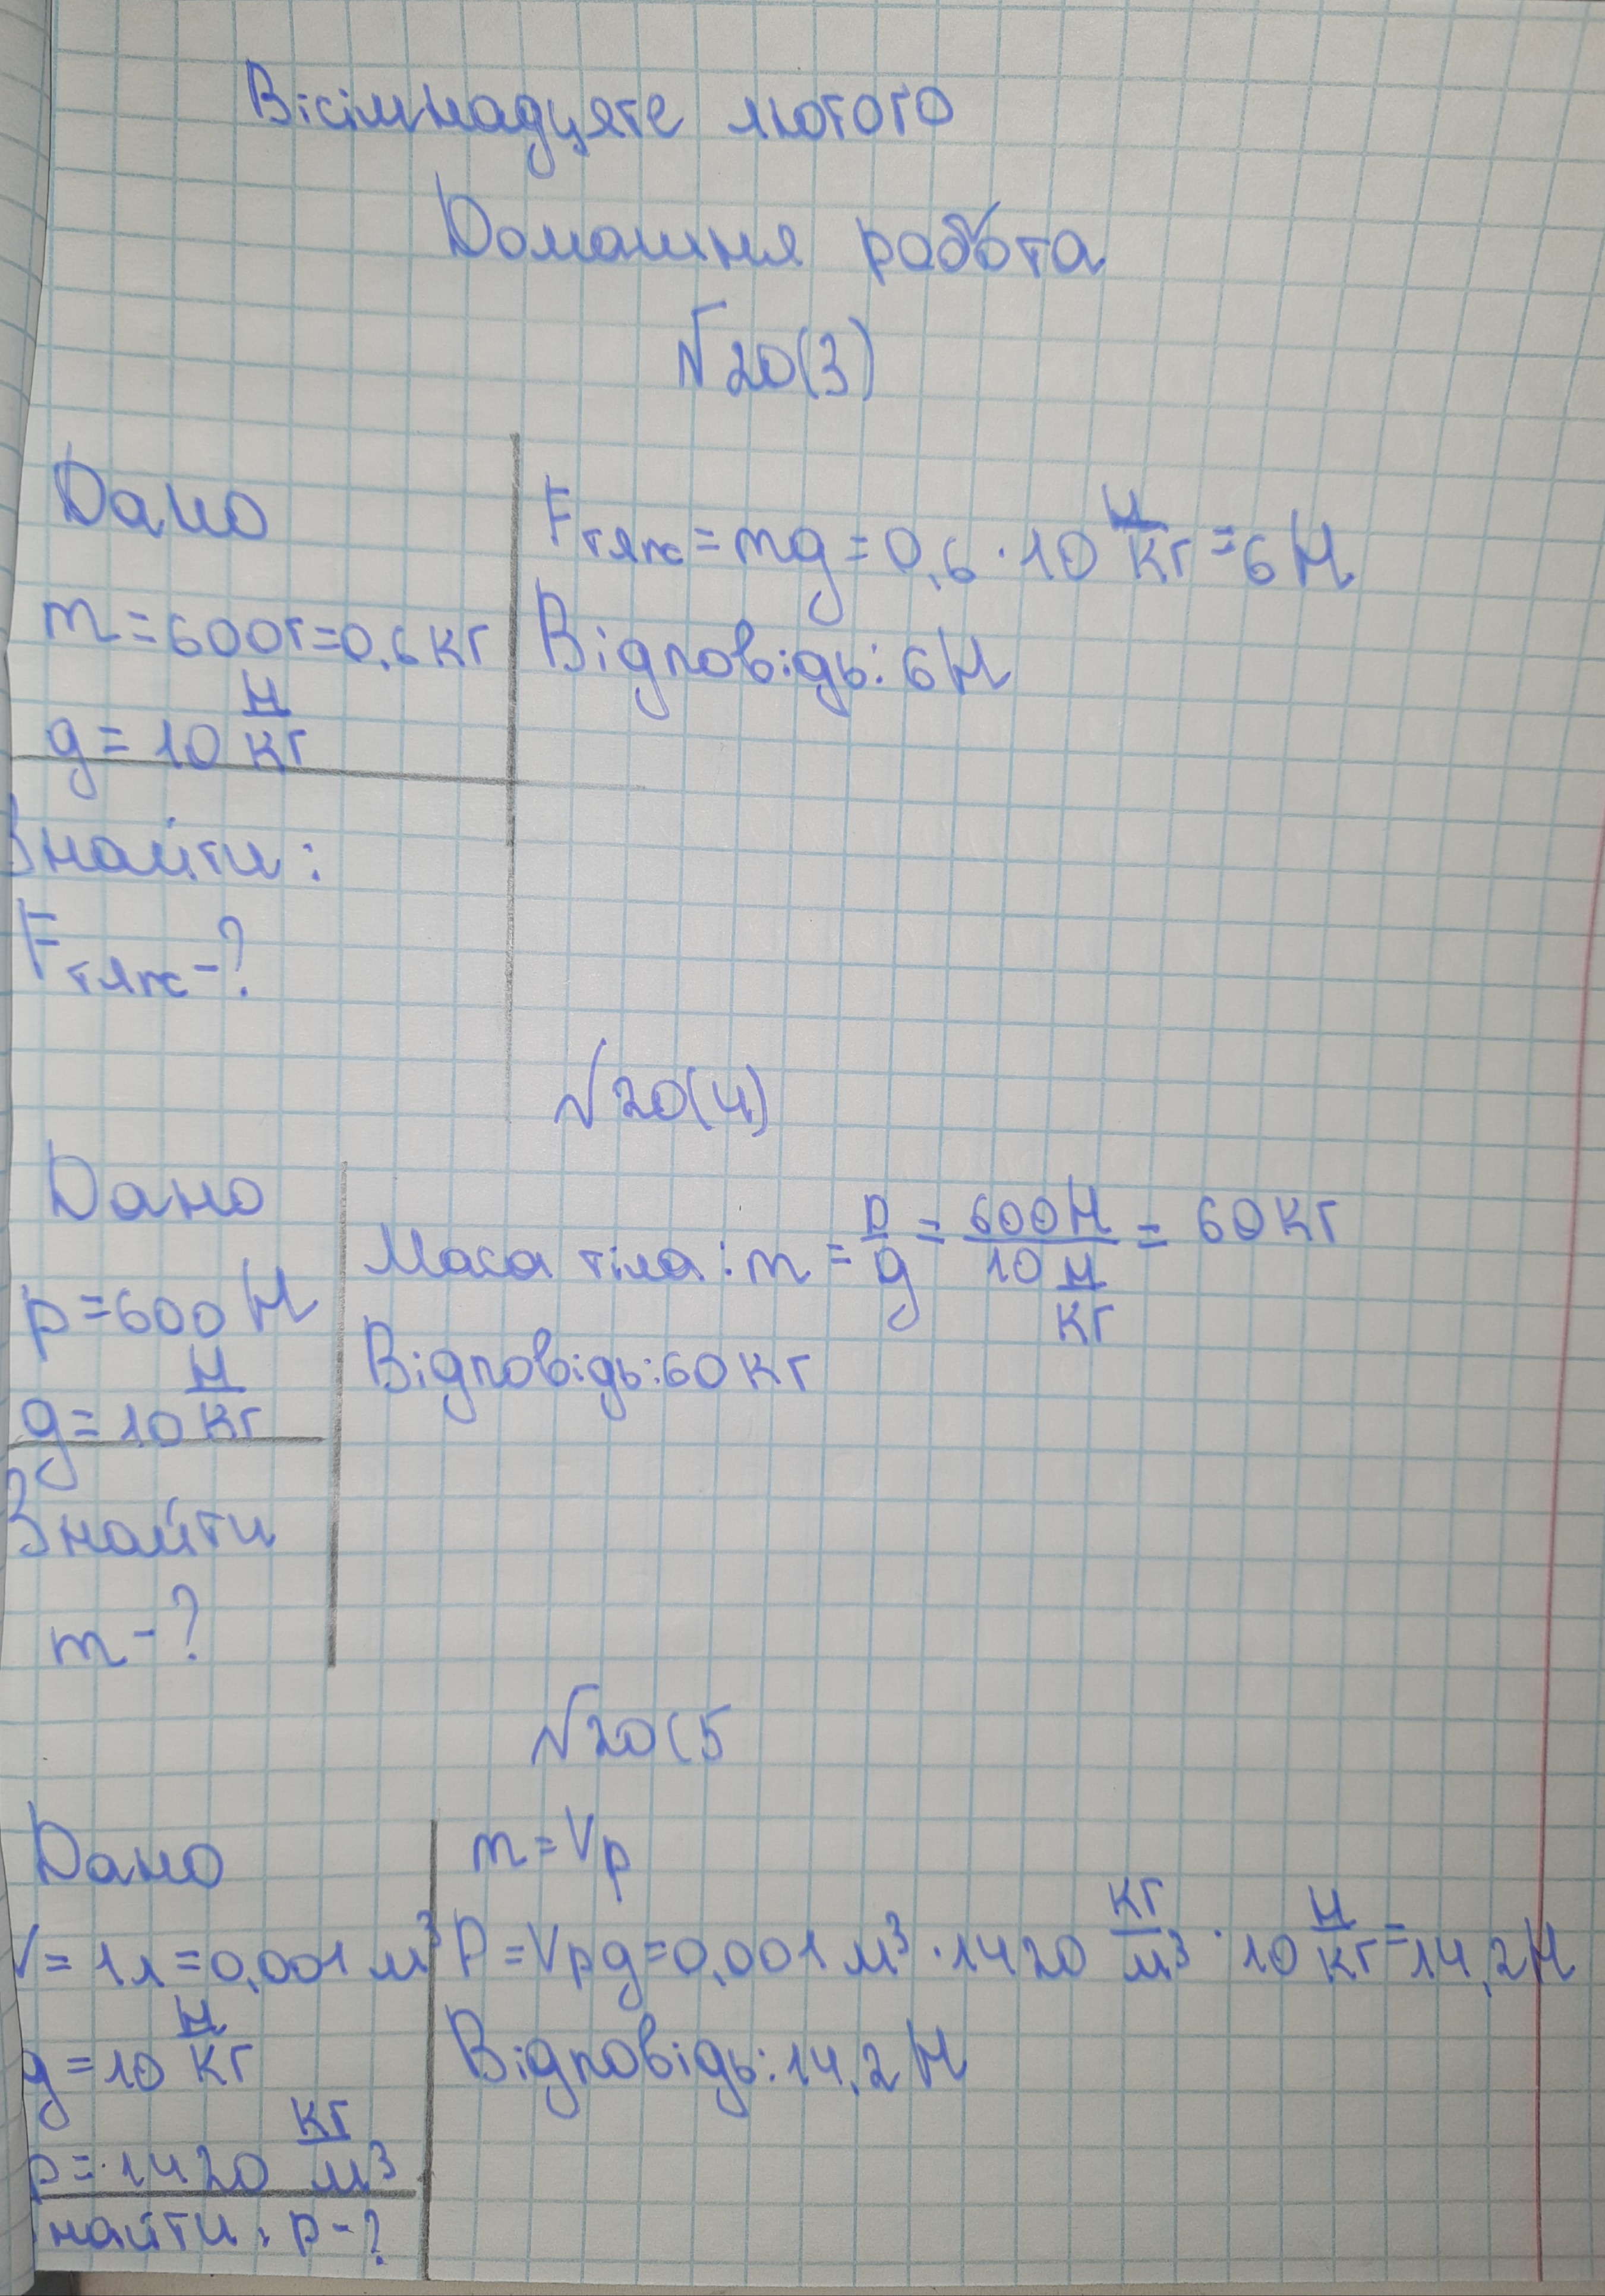 Вісімнадцяте лютого
Домашня робота
№20(3)
Дано
m=600г=0,6кг
g=10 Н/кг
Знайти:
Fтяж-?
Fтяж=mg=0,6·10 Н/кг=6Н
Відповідь: 6Н
№20(4)
Дано
p=600Н
g=10 Н/кг
Знайти
m-?
Маса тіла: m=p/g=600Н/10 Н/кг=60кг
Відповідь:60кг
№20(5
Дано
V=1л=0,001м³
g=10 Н/кг
p=1420 кг/м³
Знайти: p-?
m=Vp
P=Vpg=0,001м³·1420 кг/м³·10 Н/кг=14,2Н
Відповідь:14,2Н